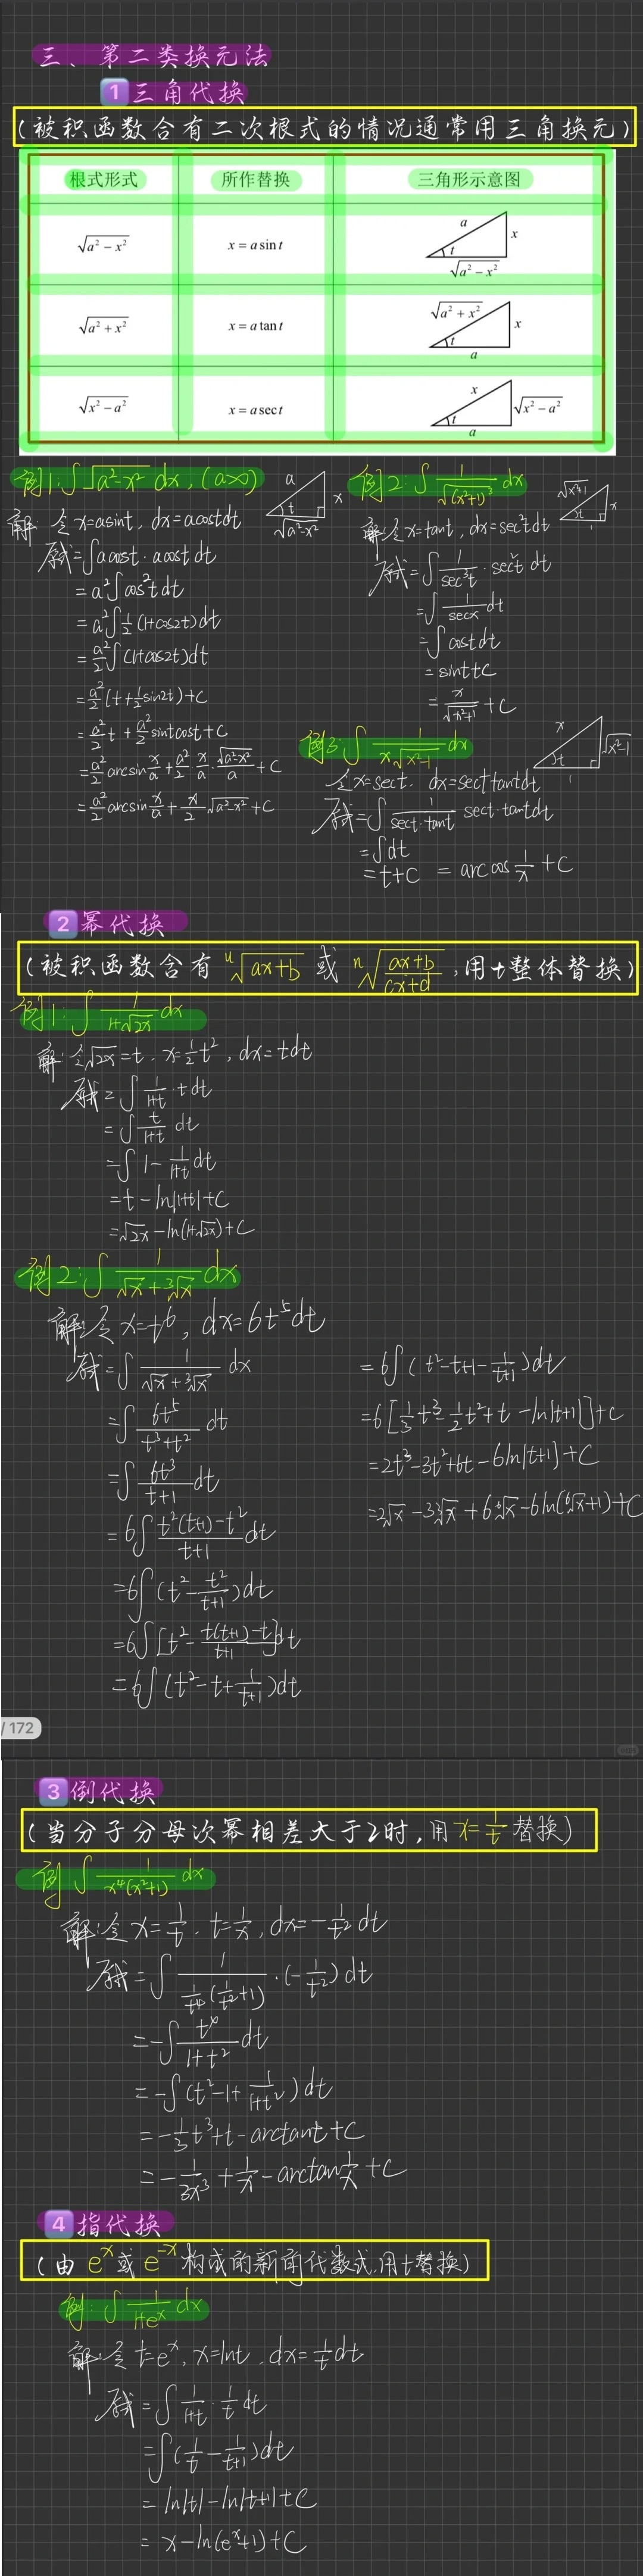 三、第二类换元法
1 三角代换
(被积函数含有二次根式的情况通常用三角换元)
根式形式 所作替换 三角形示意图
√(a²-x²) x=a sin t a t x √(a²-x²)
√(a²+x²) x=a tan t √(a²+x²) t x a
√(x²-a²) x=a sec t x t √(x²-a²) a
例1:∫√(a²-x²) dx, (a>0) a t x √(a²-x²)
解 令x=asint, dx=acostdt
原式=∫acost·acostdt
=a²∫cos²tdt
=a²∫1/2(1+cos2t)dt
=a²/2∫(1+cos2t)dt
=a²/2(t+1/2sin2t)+C
=a²/2 t+a²/2 sintcost+C
=a²/2 arcsin x/a+a²/2·x/a·√(a²-x²)/a+C
=a²/2 arcsin x/a+x/2√(a²-x²)+C
例2:∫1/√(x²+1)³ dx √(x²+1) t x 1
解:令x=tant, dx=sec²tdt
原式=∫1/sec³t·sec²t dt
=∫1/secx dt
=∫costdt
=sint+C
=x/√(x²+1)+C
例3:∫1/(x√(x²-1)) dx x t √(x²-1) 1
令x=sect. dx=sect tantdt
原式=∫1/(sect·tant) sect·tantdt
=∫dt
=t+C =arccos 1/x+C
2 幂代换
(被积函数含有 ⁿ√(ax+b) 或 ⁿ√((ax+b)/(cx+d)),用t整体替换)
例1:∫1/(1+√(2x)) dx
解:令√(2x)=t, x=1/2t², dx=tdt
原式=∫1/(1+t)·tdt
=∫t/(1+t) dt
=∫1-1/(1+t)dt
=t-ln|1+t|+C
=√(2x)-ln(1+√(2x))+C
例2:∫1/(√x+³√x) dx
解:令x=t⁶, dx=6t⁵dt
原式=∫1/(√x+³√x) dx
=∫6t⁵/(t³+t²) dt
=∫6t³/(t+1)dt
=6∫(t²(t+1)-t²)/(t+1)dt
=6∫(t²-t²/(t+1))dt
=6∫[t²-(t(t+1)-t)/(t+1)]dt
=6∫(t²-t+1/(t+1))dt
=6∫(t²-t+1-1/(t+1))dt
=6[1/3t³-1/2t²+t-ln|t+1|]+C
=2t³-3t²+6t-6ln|t+1|+C
=2√x-3³√x+6⁶√x-6ln(⁶√x+1)+C
/172
3 倒代换
(当分子分母次幂相差大于2时,用x=1/t替换)
例 ∫1/(x⁴(x²+1)) dx
解:令x=1/t, t=1/x, dx=-1/t² dt
原式=∫1/(1/t⁴(1/t²+1))·(-1/t²)dt
=-∫t⁴/(1+t²)dt
=-∫(t²-1+1/(1+t²))dt
=-1/3t³+t-arctant+C
=-1/(3x³)+1/x-arctan1/x+C
4 指代换
(由 eˣ或e⁻ˣ构成的新的代数式,用t替换)
例:∫1/(1+eˣ) dx
解:令t=eˣ, x=lnt, dx=1/t dt
原式=∫1/(1+t)·1/t dt
=∫(1/t-1/(t+1))dt
=ln|t|-ln|t+1|+C
=x-ln(eˣ+1)+C